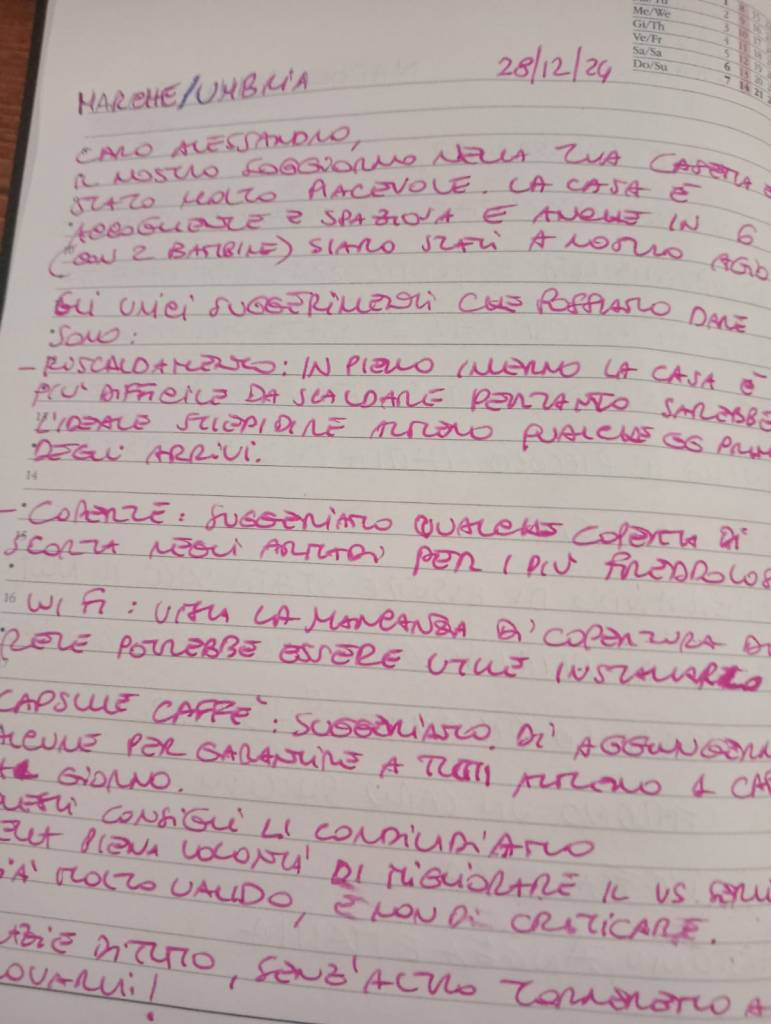 Me/We
Gi/Th
Ve/Fr
Sa/Sa
Do/Su
28/12/24
MARCHE/UMBRIA
CARO ALESSANDRO,
IL NOSTRO SOGGIORNO NELLA TUA CASETTA È
STATO MOLTO PIACEVOLE. LA CASA È
ACCOGLIENTE E SPAZIOSA E ANCHE IN 6
(CON 2 BAMBINE) SIAMO STATI A NOSTRO AGIO
GLI UNICI SUGGERIMENTI CHE POSSIAMO DARE
SONO:
- RISCALDAMENTO: IN PIENO INVERNO LA CASA È
PIU' DIFFICILE DA SCALDARE PERTANTO SAREBBE
L'IDEALE STIEPIDIRE ALMENO QUALCHE GG PRIMA
DEGLI ARRIVI.
14
- COPERTE: SUGGERIAMO QUALCHE COPERTA DI
SCORTA NEGLI ARMADI PER I PIÙ FREDDOLOS
16
WI FI: VISTA LA MANCANZA DI COPERTURA DI
RETE POTREBBE ESSERE UTILE INSTALLARLO
CAPSULE CAFFÈ: SUGGERIAMO DI AGGIUNGERN
ALCUNE PER GARANTIRE A TUTTI ALMENO 1 CAF
AL GIORNO.
QUESTI CONSIGLI LI CONDIVIDIAMO
PIENA VOLONTA' DI MIGLIORARE IL VS SERVI
GIA' MOLTO VALIDO, E NON DI CRITICARE.
DI TUTTO, SENZ'ALTRO TORNEREMO A